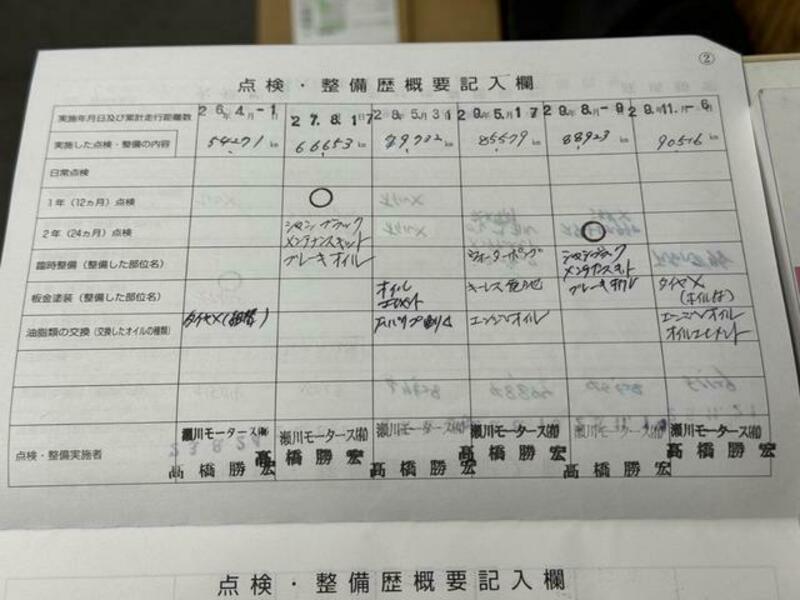 ②
点検・整備歴概要記入欄
実施年月日及び累計走行距離数
26年4月-1日
27.8.1日7
28年5.月31
29年5.月17
29年8月-9
29年11月-6日
実施した点検・整備の内容
54271 km
66653 km
79732 km
85579 km
88923 km
90516 km
日常点検
1年(12ヵ月)点検
○
2年(24ヵ月)点検
シャシ ブラック
メンテナンスキット
○
臨時整備(整備した部位名)
ブレーキオイル
ウォーターポンプ
シャシブラック
メンテナンスキット
板金塗装(整備した部位名)
オイル
エレメント
キーレス電池
ブレーキオイル
タイヤメ
油脂類の交換(交換したオイルの種類)
エンジンオイル
エンジンオイル
オイルエレメント
点検・整備実施者
瀬川モータース㈲
高橋勝宏
瀬川モータース㈲
高橋勝宏
瀬川モータース㈲
高橋勝宏
瀬川モータース㈲
高橋勝宏
瀬川モータース㈲
高橋勝宏
瀬川モータース㈲
高橋勝宏
点検・整備歴概要記入欄